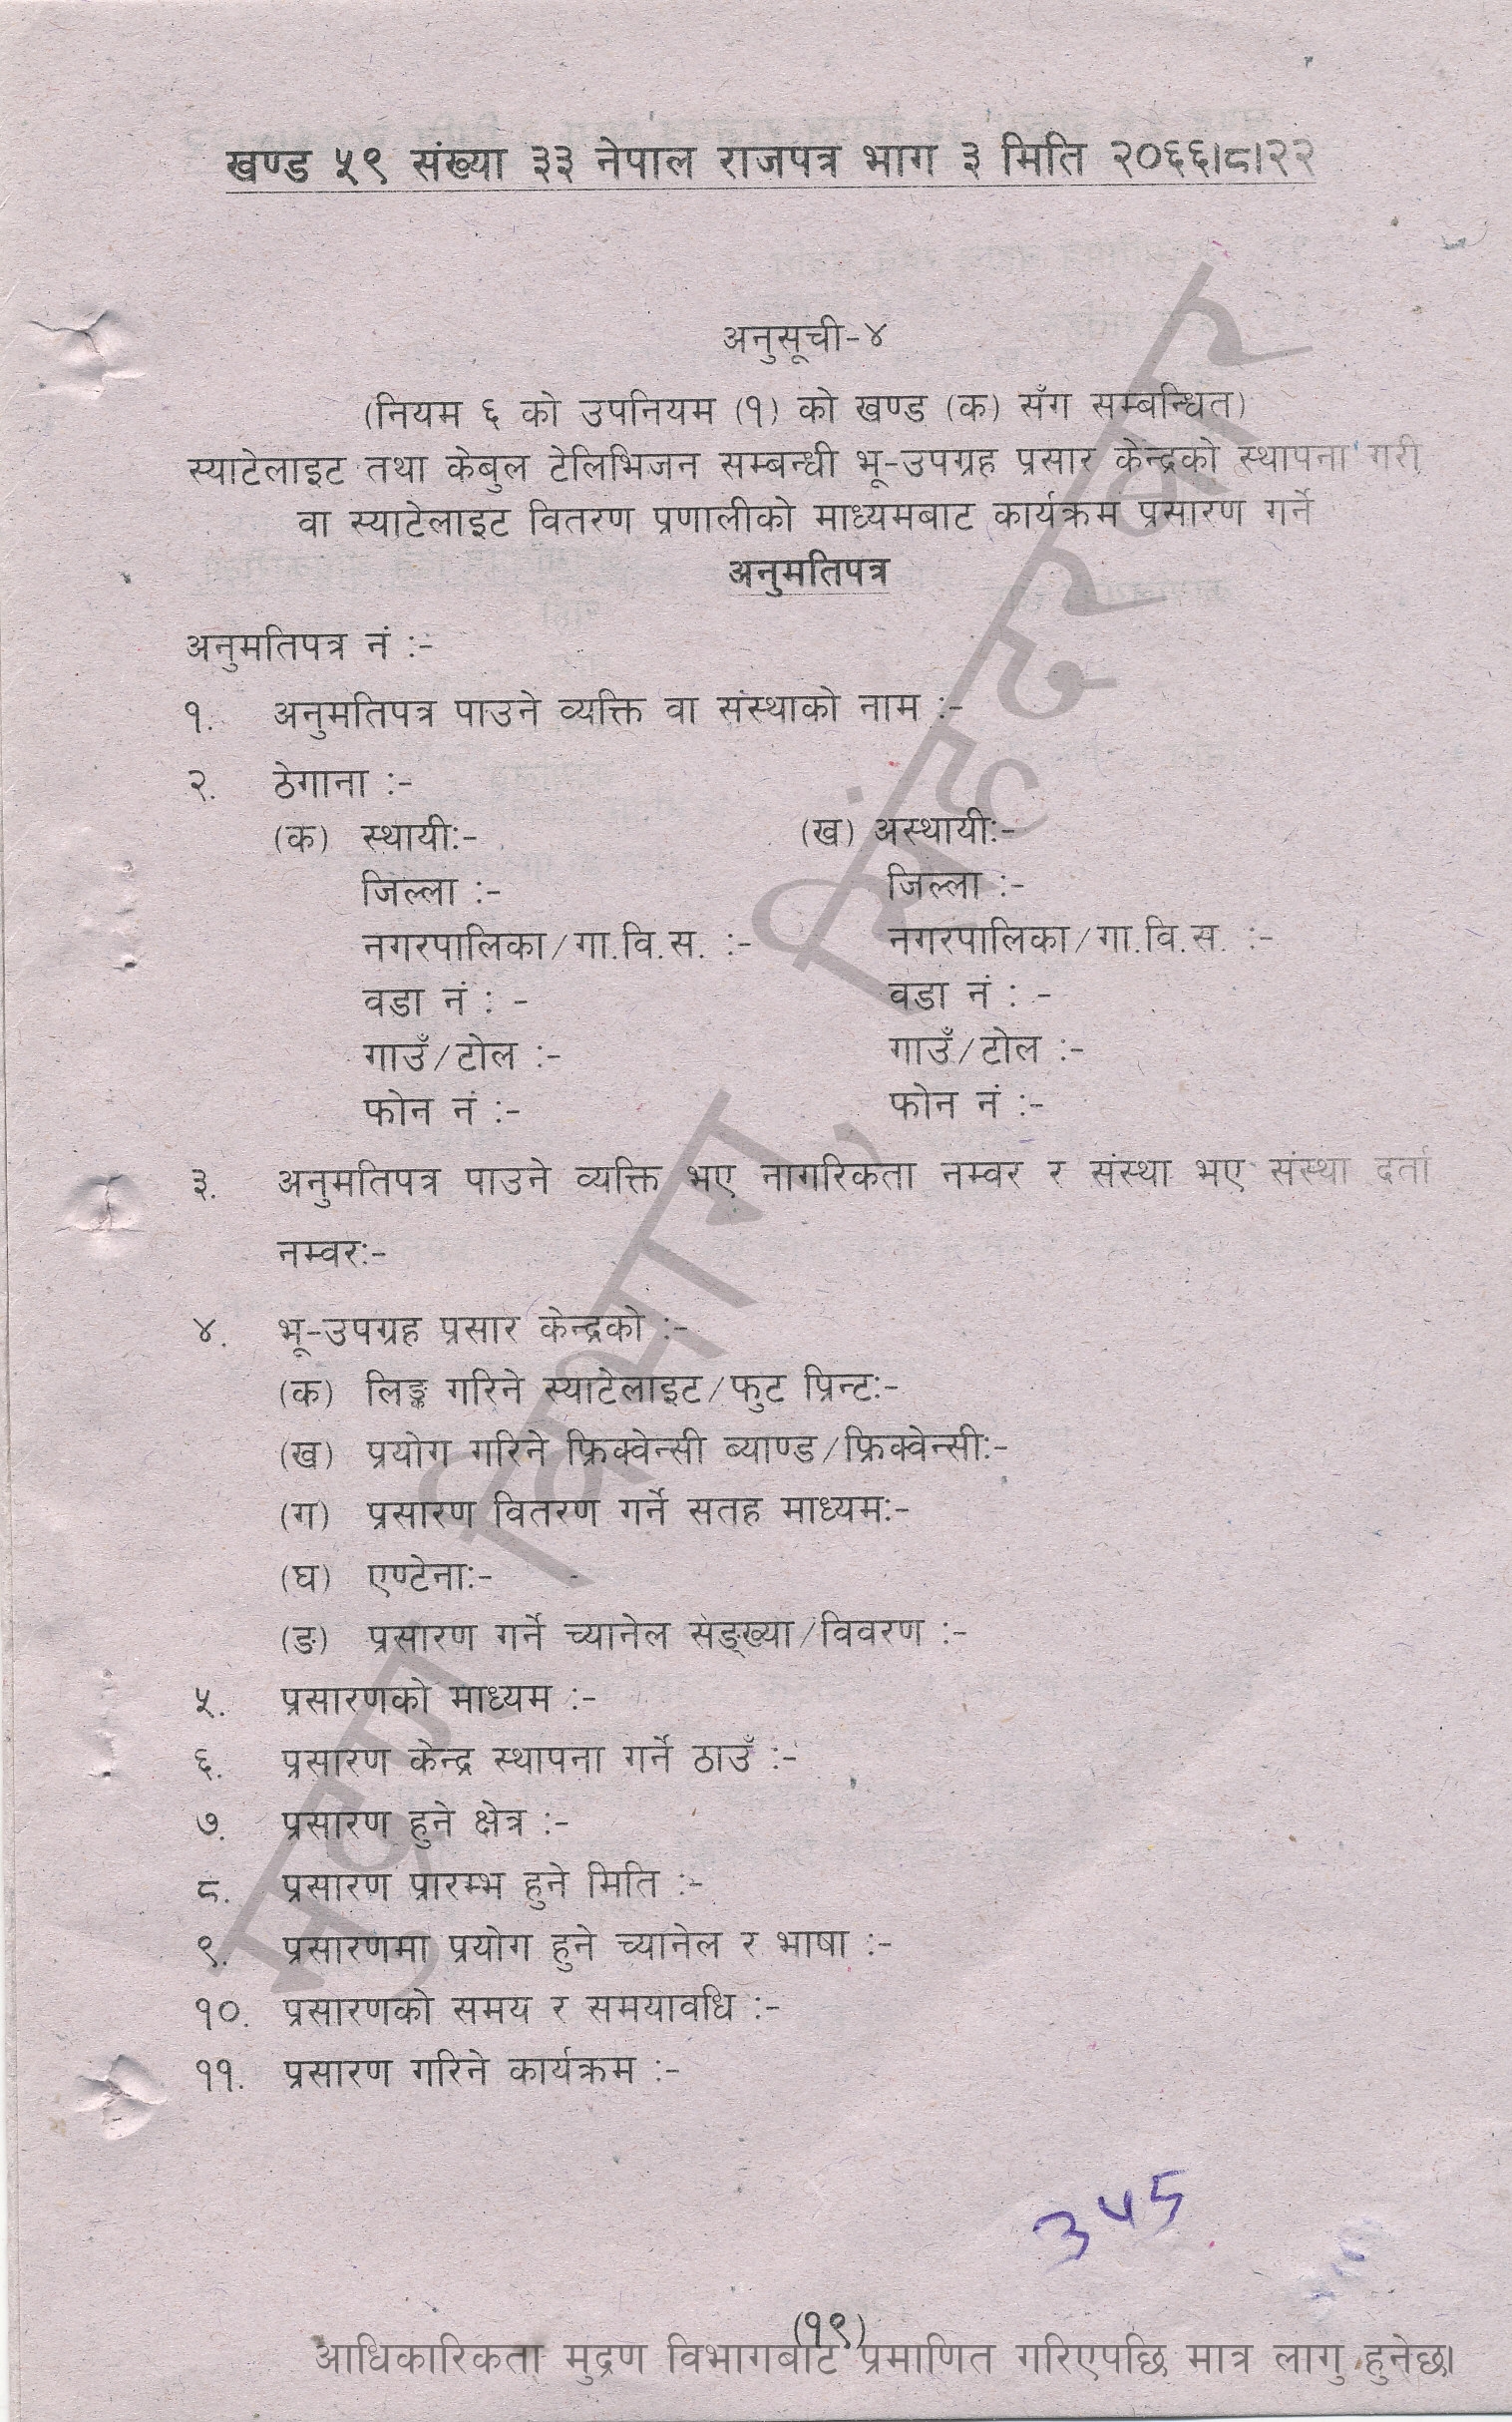 खण्ड ५९ संख्या ३३ नेपाल राजपत्र भाग ३ मिति २०६६।८।२२
अनुसूची-४
(नियम ६ को उपनियम (१) को खण्ड (क) सँग सम्बन्धित)
स्याटेलाइट तथा केबुल टेलिभिजन सम्बन्धी भू-उपग्रह प्रसार केन्द्रको स्थापना गरी
वा स्याटेलाइट वितरण प्रणालीको माध्यमबाट कार्यक्रम प्रसारण गर्ने
अनुमतिपत्र
अनुमतिपत्र नं :-
१. अनुमतिपत्र पाउने व्यक्ति वा संस्थाको नाम :-
२. ठेगाना :-
(क) स्थायी:- (ख) अस्थायी:-
जिल्ला :- जिल्ला :-
नगरपालिका/गा.वि.स. :- नगरपालिका/गा.वि.स. :-
वडा नं : - वडा नं : -
गाउँ/टोल :- गाउँ/टोल :-
फोन नं :- फोन नं :-
३. अनुमतिपत्र पाउने व्यक्ति भए नागरिकता नम्वर र संस्था भए संस्था दर्ता
नम्वर:-
४. भू-उपग्रह प्रसार केन्द्रको :-
(क) लिङ्क गरिने स्याटेलाइट/फुट प्रिन्ट:-
(ख) प्रयोग गरिने फ्रिक्वेन्सी ब्याण्ड/फ्रिक्वेन्सी:-
(ग) प्रसारण वितरण गर्ने सतह माध्यम:-
(घ) एण्टेना:-
(ङ) प्रसारण गर्ने च्यानेल सङ्ख्या/विवरण :-
५. प्रसारणको माध्यम :-
६. प्रसारण केन्द्र स्थापना गर्ने ठाउँ :-
७. प्रसारण हुने क्षेत्र :-
८. प्रसारण प्रारम्भ हुने मिति :-
९. प्रसारणमा प्रयोग हुने च्यानेल र भाषा :-
१०. प्रसारणको समय र समयावधि :-
११. प्रसारण गरिने कार्यक्रम :-
मुद्रण विभाग, सिंहदरबार
(१९)
आधिकारिकता मुद्रण विभागबाट प्रमाणित गरिएपछि मात्र लागु हुनेछ।